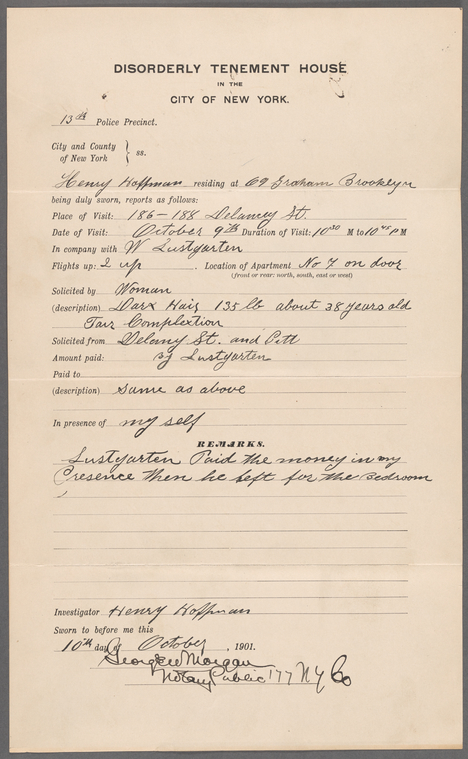 DISORDERLY TENEMENT HOUSE
IN THE
CITY OF NEW YORK.
13th Police Precinct.
City and County
of New York } ss.
Henry Hoffman residing at 69 Graham Brooklyn
being duly sworn, reports as follows:
Place of Visit: 186-188 Delancy St.
Date of Visit: October 9th Duration of Visit: 10 30 M to 10 45 P M
In company with W Lustgarten
Flights up: 2 up . Location of Apartment No 7 on door
(front or rear: north, south, east or west)
Solicited by Woman
(description) Dark Hair 135 lb about 38 years old
Fair Complextion
Solicited from Delany St. and Pitt
Amount paid: by Lustgarten
Paid to
(description) same as above
In presence of my self
REMARKS.
Lustgarten Paid the money in my
Presence then he left for the Bedroom
Investigator Henry Hoffman
Sworn to before me this
10th day of October , 1901.
Morgan
Notary Public 177 NY Co